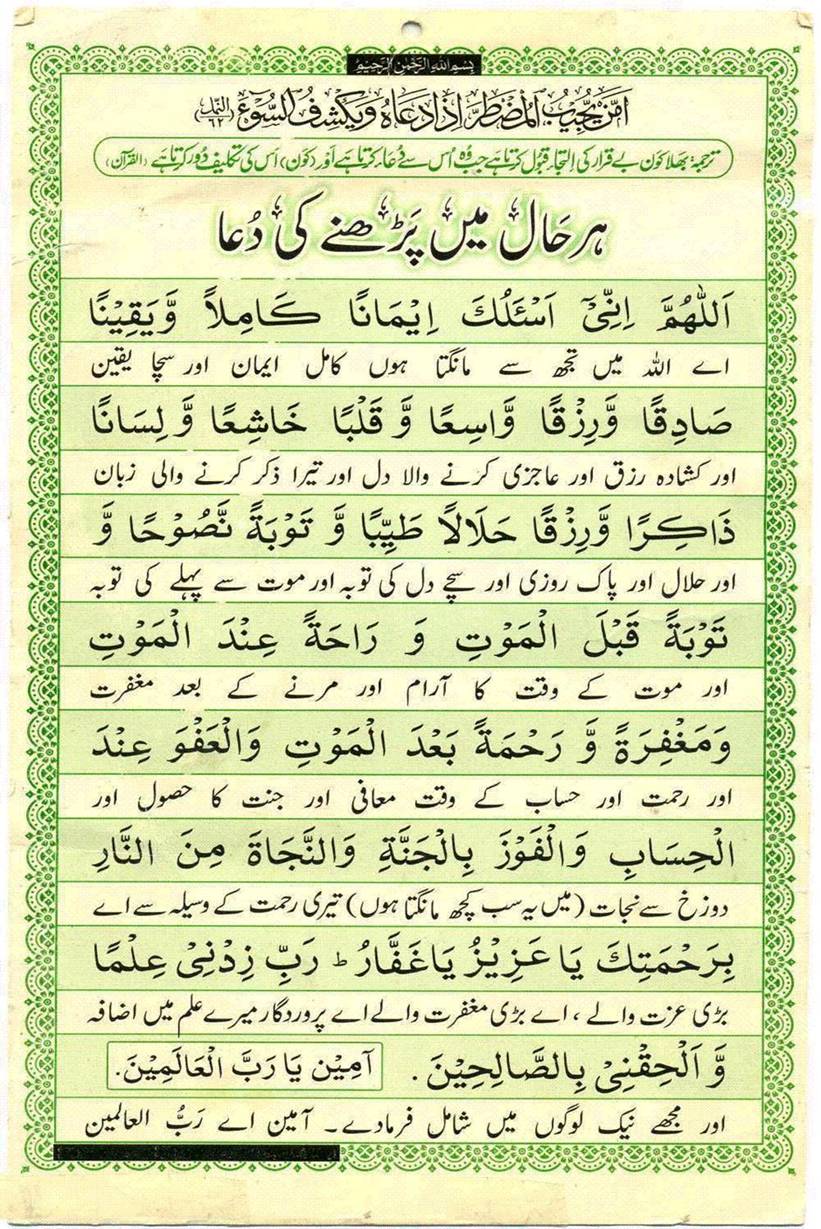 بِسْمِ اللهِ الرَّحْمٰنِ الرَّحِيْمِ
اَمَّنْ يُّجِيْبُ الْمُضْطَرَّ اِذَا دَعَاهُ وَيَكْشِفُ السُّوْءَ (النمل ٦٢)
ترجمہ: بھلا کون بے قرار کی التجا قبول کرتا ہے جب وہ اُس سے دُعاء کرتا ہے اور (کون) اُس کی تکلیف دُور کرتا ہے (القرآن)
ہر حال میں پڑھنے کی دُعا
اَللّٰهُمَّ اِنِّیْٓ اَسْئَلُكَ اِيْمَانًا كَامِلاً وَّيَقِيْنًا
اے اللہ میں تجھ سے مانگتا ہوں کامل ایمان اور سچا یقین
صَادِقًا وَّرِزْقًا وَّاسِعًا وَّ قَلْبًا خَاشِعًا وَّ لِسَانًا
اور کشادہ رزق اور عاجزی کرنے والا دل اور تیرا ذکر کرنے والی زبان
ذَاكِرًا وَّرِزْقًا حَلَالًا طَيِّبًا وَّ تَوْبَةً نَّصُوْحًا وَّ
اور حلال اور پاک روزی اور سچے دل کی توبہ اور موت سے پہلے کی توبہ
تَوْبَةً قَبْلَ الْمَوْتِ وَ رَاحَةً عِنْدَ الْمَوْتِ
اور موت کے وقت کا آرام اور مرنے کے بعد مغفرت
وَمَغْفِرَةً وَّ رَحْمَةً بَعْدَ الْمَوْتِ وَالْعَفْوَ عِنْدَ
اور رحمت اور حساب کے وقت معافی اور جنت کا حصول اور
الْحِسَابِ وَالْفَوْزَ بِالْجَنَّةِ وَالنَّجَاةَ مِنَ النَّارِ
دوزخ سے نجات (میں یہ سب کچھ مانگتا ہوں) تیری رحمت کے وسیلہ سے اے
بِرَحْمَتِكَ يَا عَزِيْزُ يَا غَفَّارُ ط رَبِّ زِدْنِیْ عِلْمًا
بڑی عزت والے ، اے بڑی مغفرت والے اے پروردگار میرے علم میں اضافہ
وَّ اَلْحِقْنِیْ بِالصَّالِحِيْنَ . آمِيْن يَا رَبَّ الْعَالَمِيْنَ.
اور مجھے نیک لوگوں میں شامل فرمادے۔ آمین اے رَبُّ العالمین